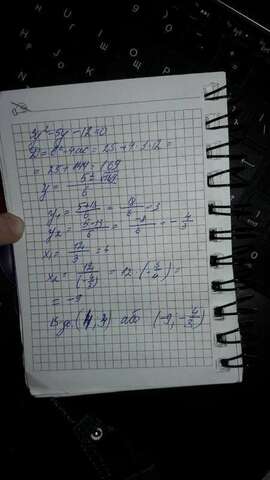 3y²-5y-12=0
D=b²-4ac=25+4·3·12=
=25+144=169
y=
y₁=5+13/6=18/6=3
y₂=5-13/6=-8/6=-4/3
x₁=12/3=4
x₂=12/(-4/3)=12·(-3/4)=
=-9
(4,3) або (-9,-4/3)